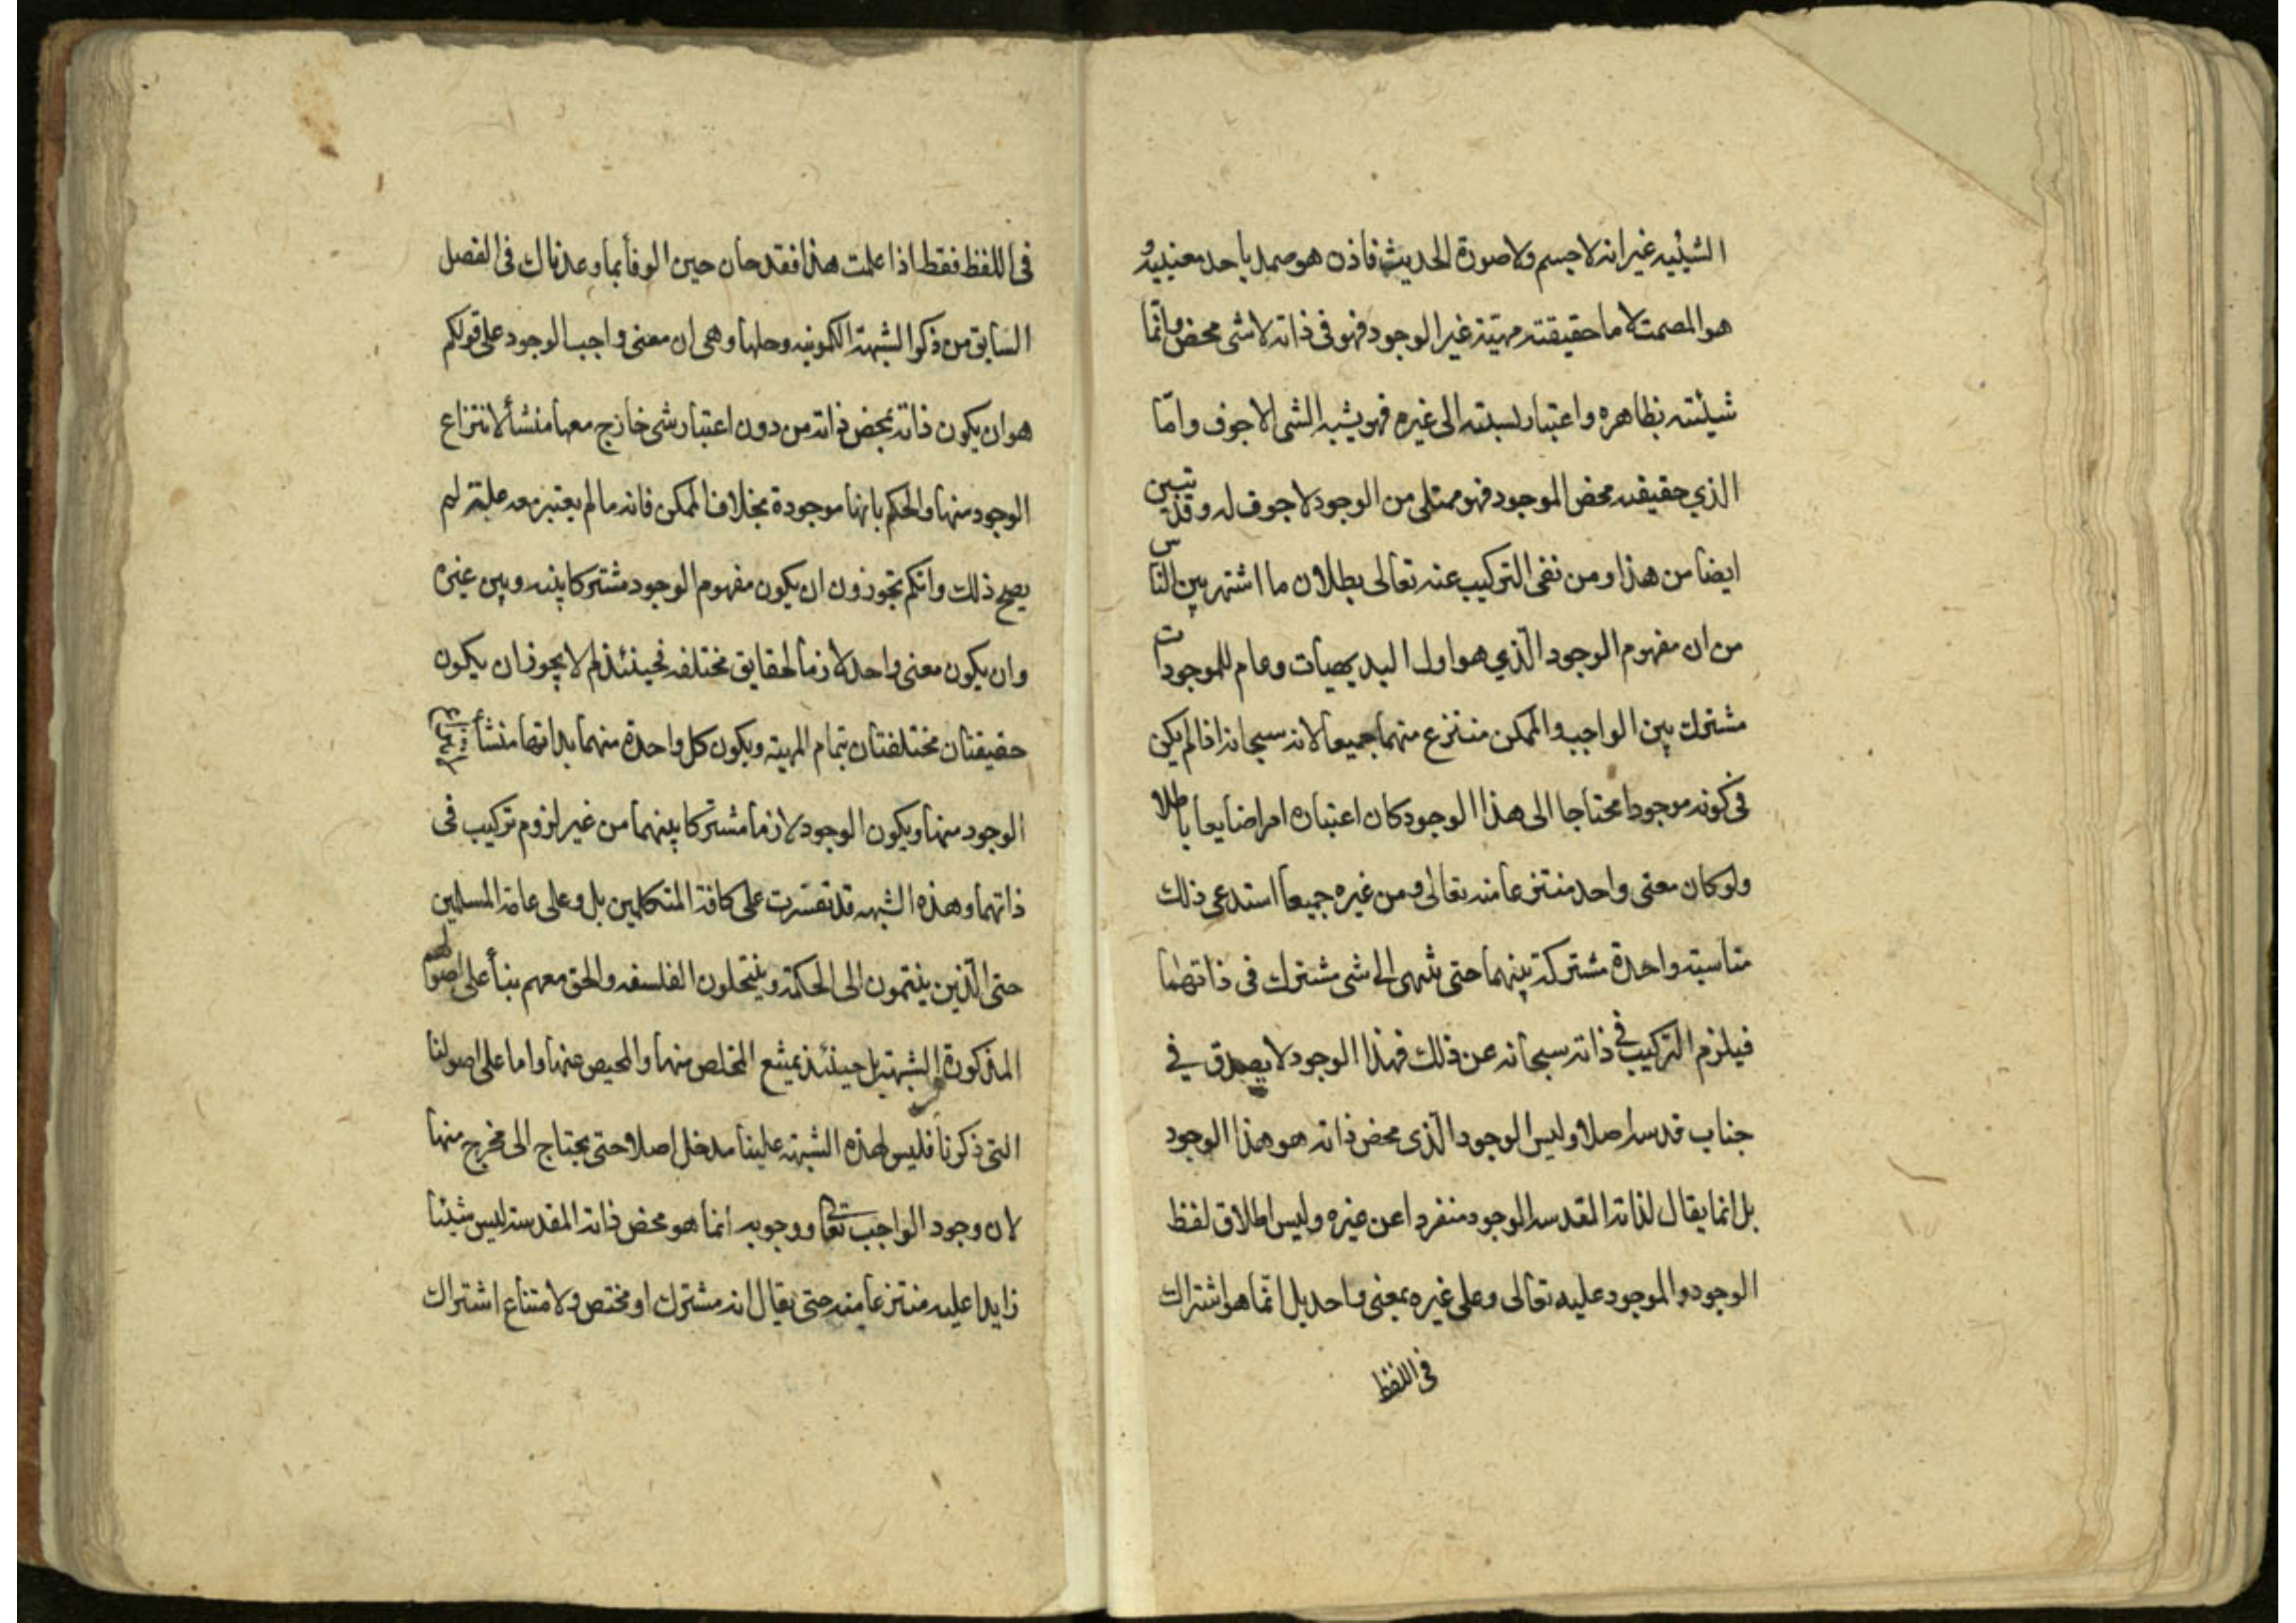 الشيئيه غير انه لا جسم ولا صورة الحديث فاذن هو صمد باحد معنييه
هو المصمت لا ما حقيقته مهيته غير الوجود فهو في ذاته لا شى محض وانما
شيئته بظاهره واعتبار نسبته الى غيره فهو يشبه الشى الاجوف وامّا
الذي حقيقته محض الموجود فهو ممتلى من الوجود لا جوف له وقد تبين
ايضا من هذا ومن نفى التركيب عنه تعالى بطلان ما اشتهر بين الناس
من ان مفهوم الوجود الّذي هو اول البديهيات وعام للموجودات
مشترك بين الواجب والممكن منتزع منهما جميعا لانه سبحانه اذا لم يكن
فى كونه موجودا محتاجا الى هذا الوجود كان اعتباره امرا ضايعا باطلا
ولو كان معنى واحد منتزعا منه تعالى ومن غيره جميعا استدعى ذلك
مناسبته واحدة مشتركة بينهما حتى ينتهى الى شى مشترك فى ذاتهما
فيلزم التركيب في ذاته سبحانه عن ذلك فهذا الوجود لا يصدق في
جناب قدسه اصلا وليس الوجود الّذى محض ذاته هو هذا الوجود
بل انما يقال لذاته المقدسه الوجود منفردا عن غيره وليس اطلاق لفظ
الوجود والموجود عليه تعالى وعلى غيره بمعنى واحد بل انّما هو اشتراك
فى اللفظ
فى اللفظ فقط اذا علمت هذا فقد حان حين الوفأ بما وعدناك فى الفصل
السابق من ذكر الشبهة الكمونيه وحلها وهى ان معنى واجب الوجود على قولكم
هو ان يكون ذاته بمحض ذاته من دون اعتبار شى خارج معها منشأ لانتزاع
الوجود منها والحكم بانها موجودة بخلاف الممكن فانه ما لم يعتبر معه علته لم
يصح ذلك وانكم تجوزون ان يكون مفهوم الوجود مشتركا بينه وبين غيره
وان يكون معنى واحد لازما لحقايق مختلفه فحينئذ لم لا يجوز ان يكون
حقيقتان مختلفتان بتمام المهيته ويكون كل واحدة منهما بذاتها منشأ
الوجود منها ويكون الوجود لازما مشتركا بينهما من غير لزوم تركيب فى
ذاتهما وهذه الشبهه قد تعسّرت على كافة المتكلمين بل وعلى عامة المسلمين
حتى الّذين ينتمون الى الحكمة وينتحلون الفلسفه والحق معهم بنأ على اصولهم
المذكورة الشبهة بل حينئذ يمتنع المخلص منها والمحيص عنها واما على اصولنا
التى ذكرنا فليس لهذه الشبهته علينا مدخل اصلا حتى يحتاج الى مخرج منها
لان وجود الواجب تعالى ووجوبه انما هو محض ذاته المقدسة ليس شيئا
زايدا عليه منتزعا منه حتى يقال انه مشترك او مختص ولامتناع اشتراك